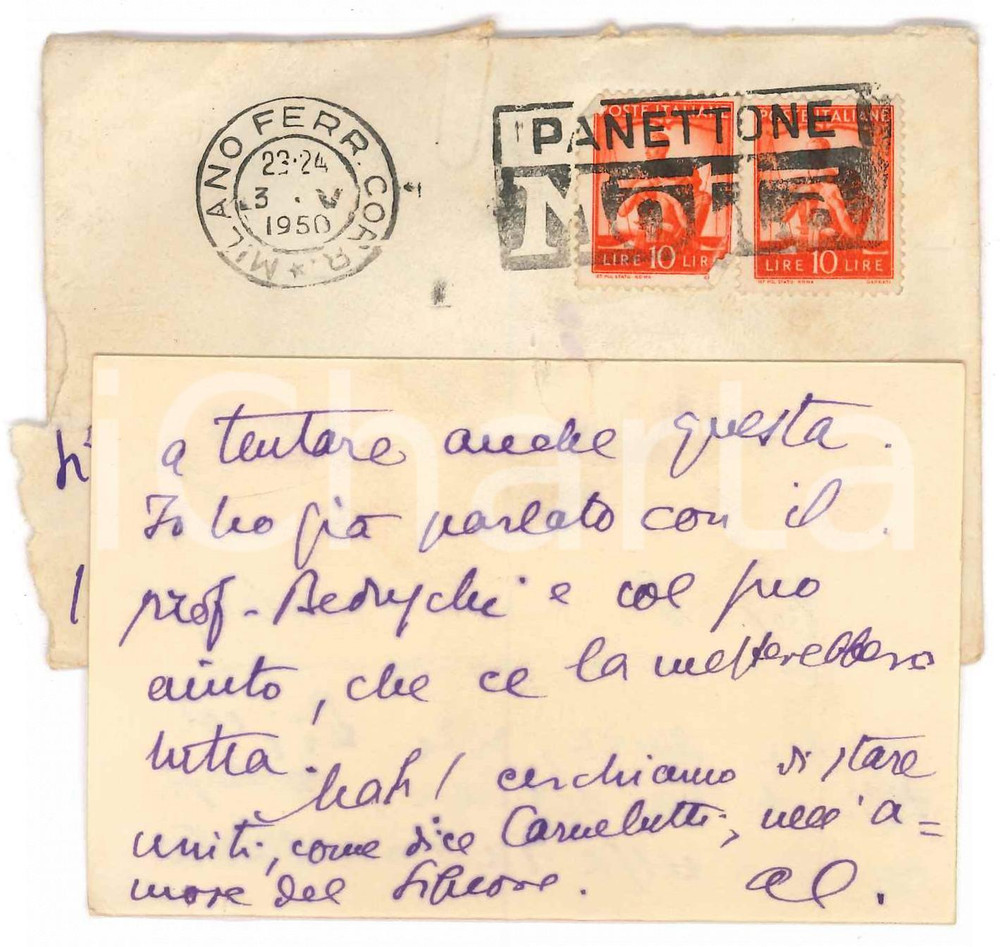 MILANO FERR. CORR.
23·24
3 · V
1950
PANETTONE
POSTE ITALIANE
POSTE ITALIANE
LIRE 10 LIRE
LIRE 10 LIRE
iCharta
a tentare anche questa.
Io ho già parlato con il
prof. e col suo
aiuto, che ce la metterebbero
tutta.
Mah! cerchiamo di stare
uniti, come dice Carnelutti, nell'a=
more del Signore.